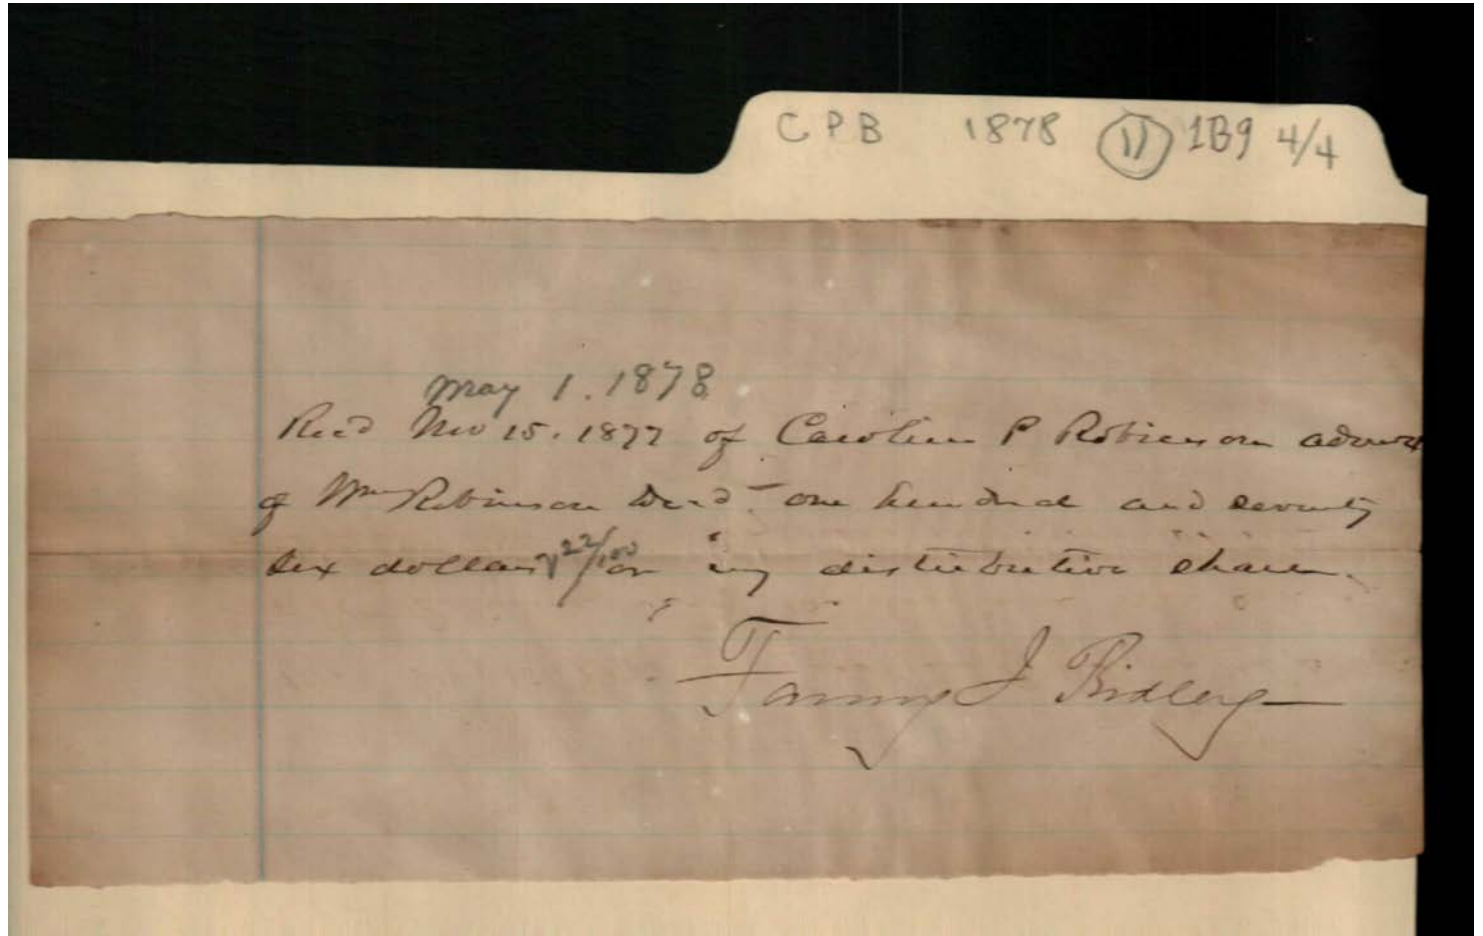 CPB 1878 (11) 1B9 4/4
May 1. 1878
Recd Nov 15. 1877 of Caroline P Robinson admrx
of Wm Robinson Decd one hundred and seventy
six dollars & 22/100 on my distributive share.
Fanny J Ridley